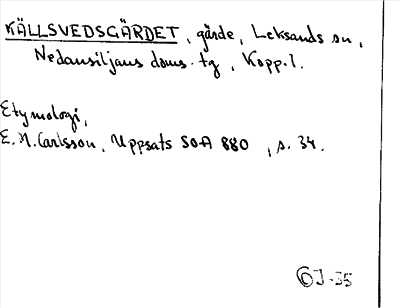 KÄLLSVEDSGÄRDET, gärde, Leksands sn,
Nedansiljans doms.tg, Kopp.l.
Etymologi,
E.M.Carlsson, Uppsats SOA 880, s. 34.
GJ-35